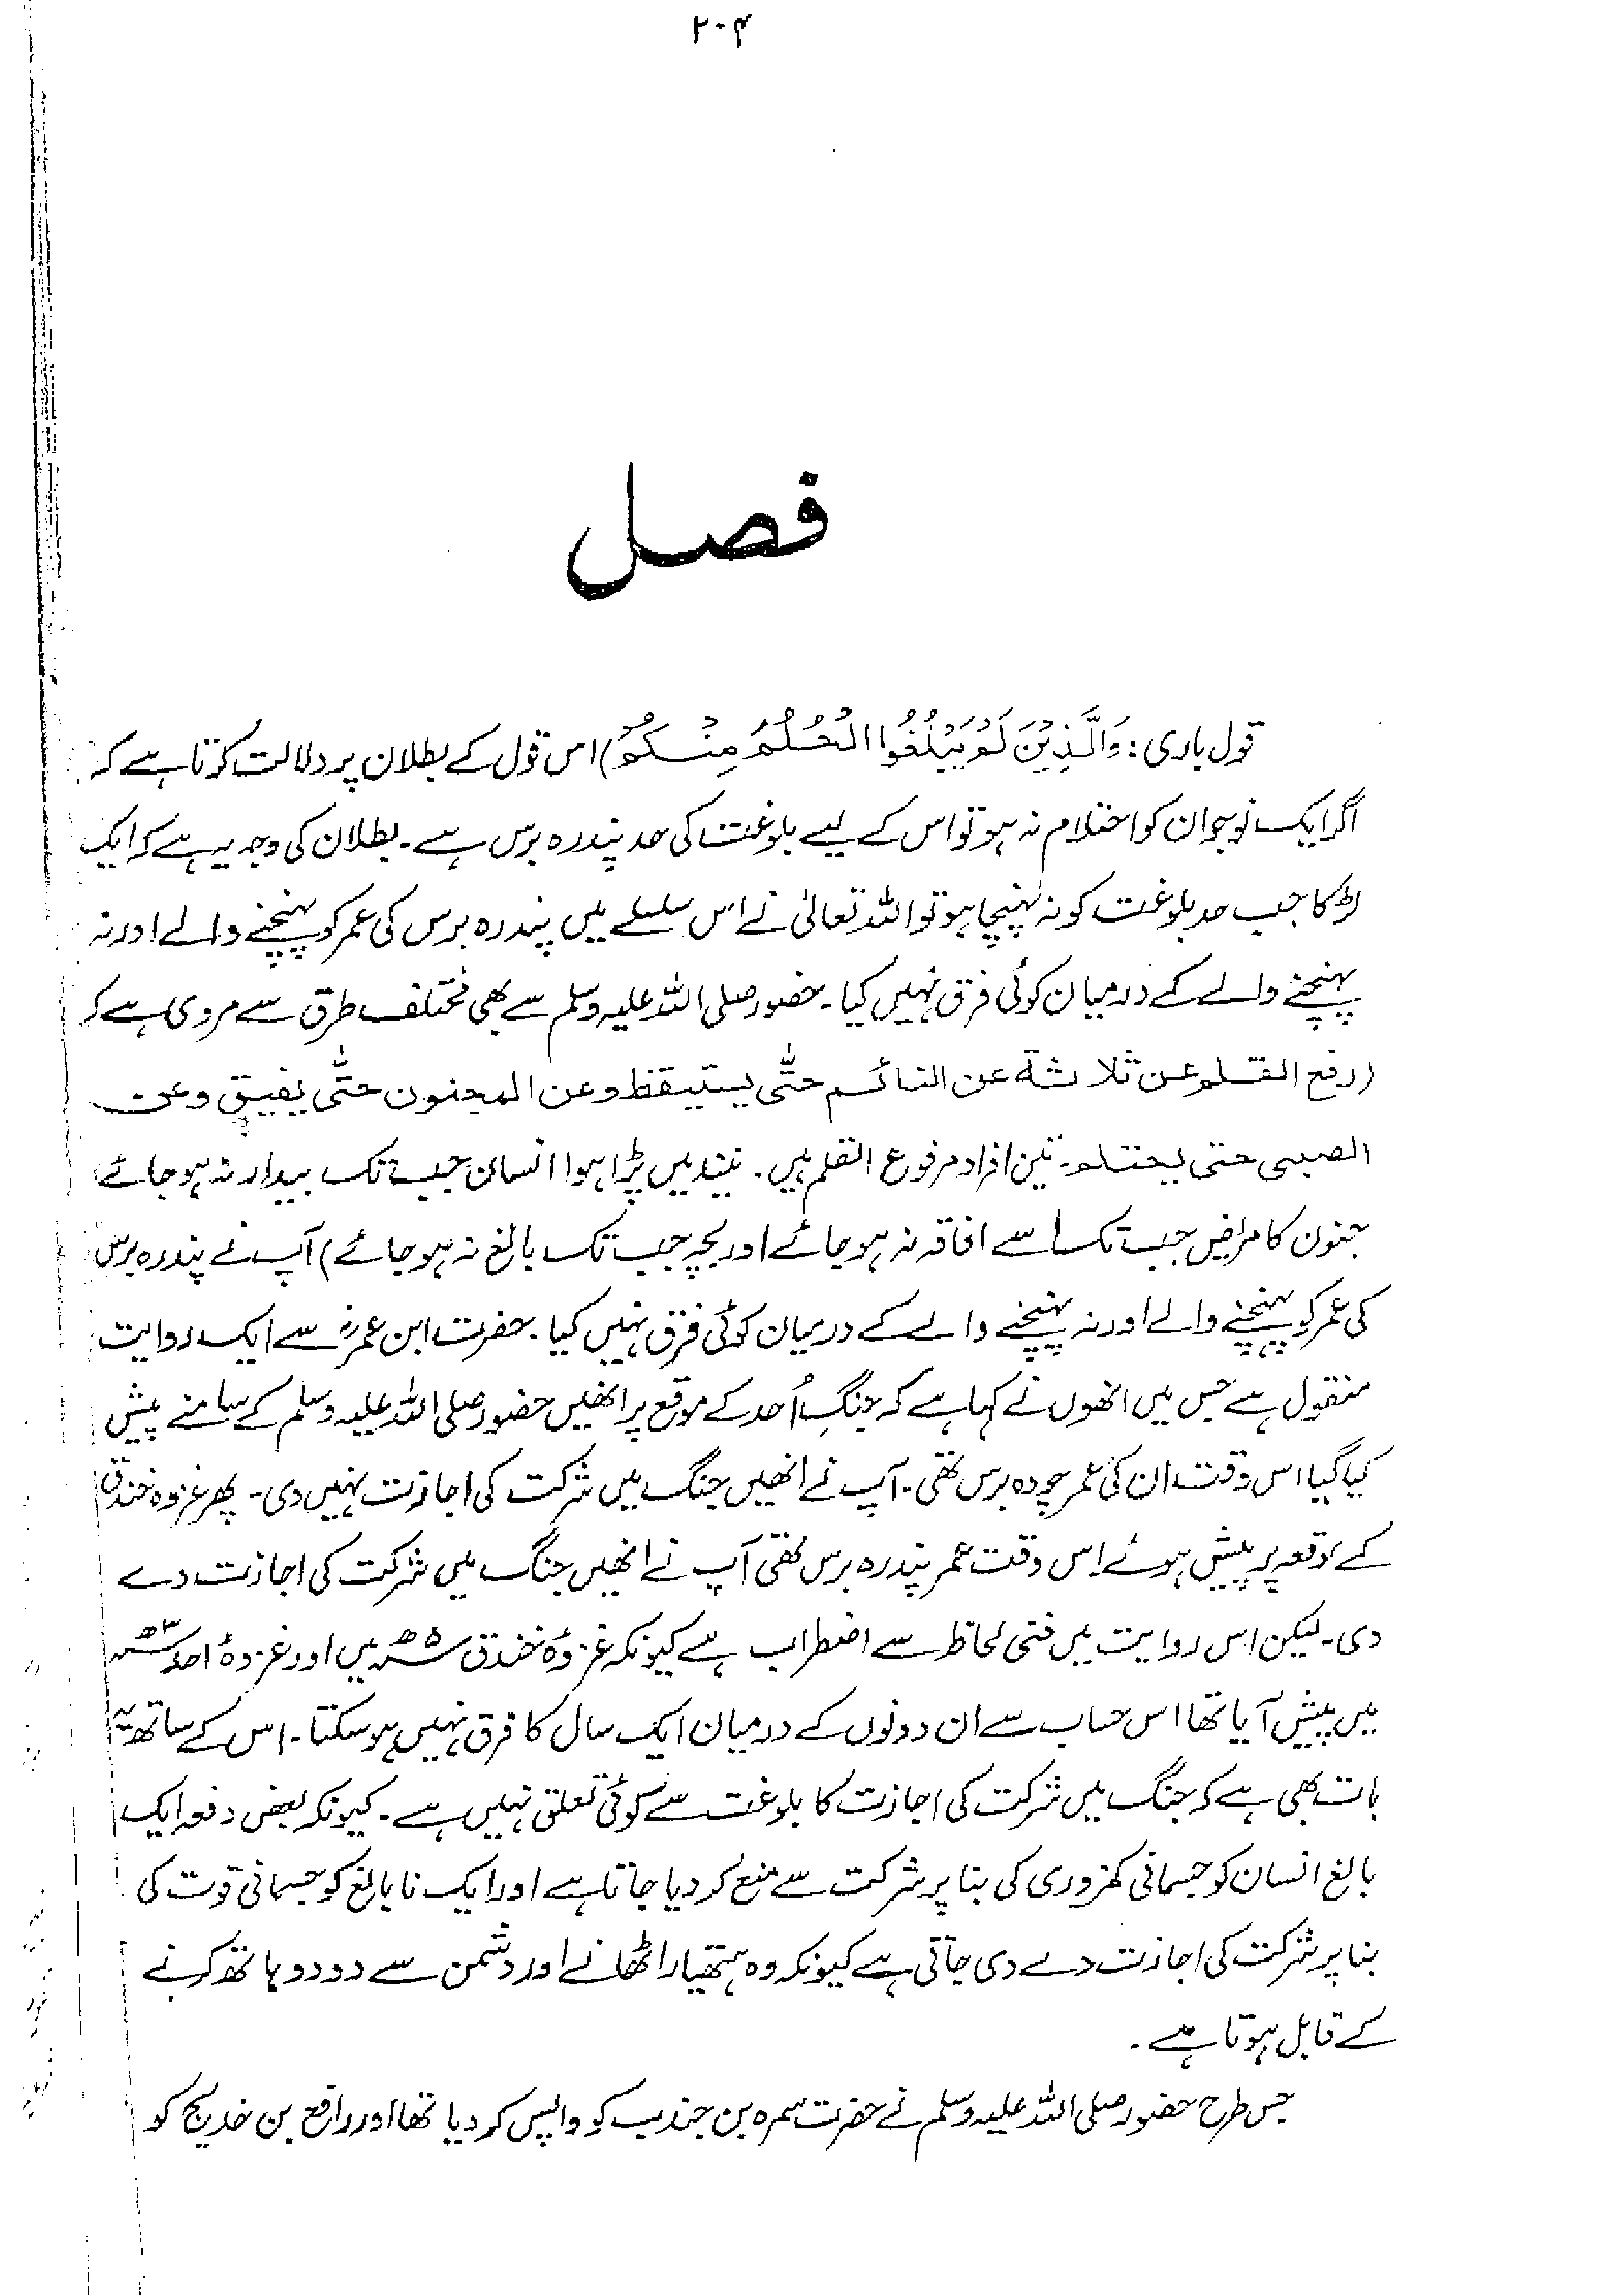 ۲۰۴
فصل
قول باری: وَالَّذِيْنَ لَمْ يَبْلُغُوا الْحُلُمَ مِنْكُمْ) اس قول کے بطلان پر دلالت کرتا ہے کہ
اگر ایک نوجوان کو احتلام نہ ہو تو اس کے لیے بلوغت کی حد پندرہ برس ہے۔ بطلان کی وجہ یہ ہے کہ ایک
لڑکا جب حد بلوغت کو نہ پہنچا ہو تو اللہ تعالیٰ نے اس سلسلے میں پندرہ برس کی عمر کو پہنچنے والے اور نہ
پہنچنے والے کے درمیان کوئی فرق نہیں کیا۔ حضور صلی اللہ علیہ وسلم سے بھی مختلف طرق سے مروی ہے کہ
(رفع القلم عن ثلاثة عن النائم حتّٰى يستيقظ وعن المجنون حتّٰى يفيق وعن
الصبى حتى يحتلم۔ تین افراد مرفوع القلم ہیں۔ نیند میں پڑا ہوا انسان جب تک بیدار نہ ہو جائے،
جنون کا مریض جب تک اسے افاقہ نہ ہو جائے اور بچہ جب تک بالغ نہ ہو جائے) آپ نے پندرہ برس
کی عمر کو پہنچنے والے اور نہ پہنچنے والے کے درمیان کوئی فرق نہیں کیا۔ حضرت ابن عمرؓ سے ایک روایت
منقول ہے جس میں انھوں نے کہا ہے کہ جنگِ اُحد کے موقع پر انھیں حضور صلی اللہ علیہ وسلم کے سامنے پیش
کیا گیا اس وقت ان کی عمر چودہ برس تھی۔ آپ نے انھیں جنگ میں شرکت کی اجازت نہیں دی۔ پھر غزوہ خندق
کے موقعہ پر پیش ہوئے اس وقت عمر پندرہ برس تھی آپ نے انھیں جنگ میں شرکت کی اجازت دے
دی۔ لیکن اس روایت میں فنی لحاظ سے اضطراب ہے کیونکہ غزوۂ خندق ۵ھ میں اور غزوۂ احد ۳ھ
میں پیش آیا تھا اس حساب سے ان دونوں کے درمیان ایک سال کا فرق نہیں ہو سکتا۔ اس کے ساتھ یہ
بات بھی ہے کہ جنگ میں شرکت کی اجازت کا بلوغت سے کوئی تعلق نہیں ہے۔ کیونکہ بعض دفعہ ایک
بالغ انسان کو جسمانی کمزوری کی بنا پر شرکت سے منع کر دیا جاتا ہے اور ایک نابالغ کو جسمانی قوت کی
بنا پر شرکت کی اجازت دے دی جاتی ہے کیونکہ وہ ہتھیار اٹھانے اور دشمن سے دو دو ہاتھ کرنے
کے قابل ہوتا ہے۔
جس طرح حضور صلی اللہ علیہ وسلم نے حضرت سمرہ بن جندب کو واپس کر دیا تھا اور رافع بن خدیج کو